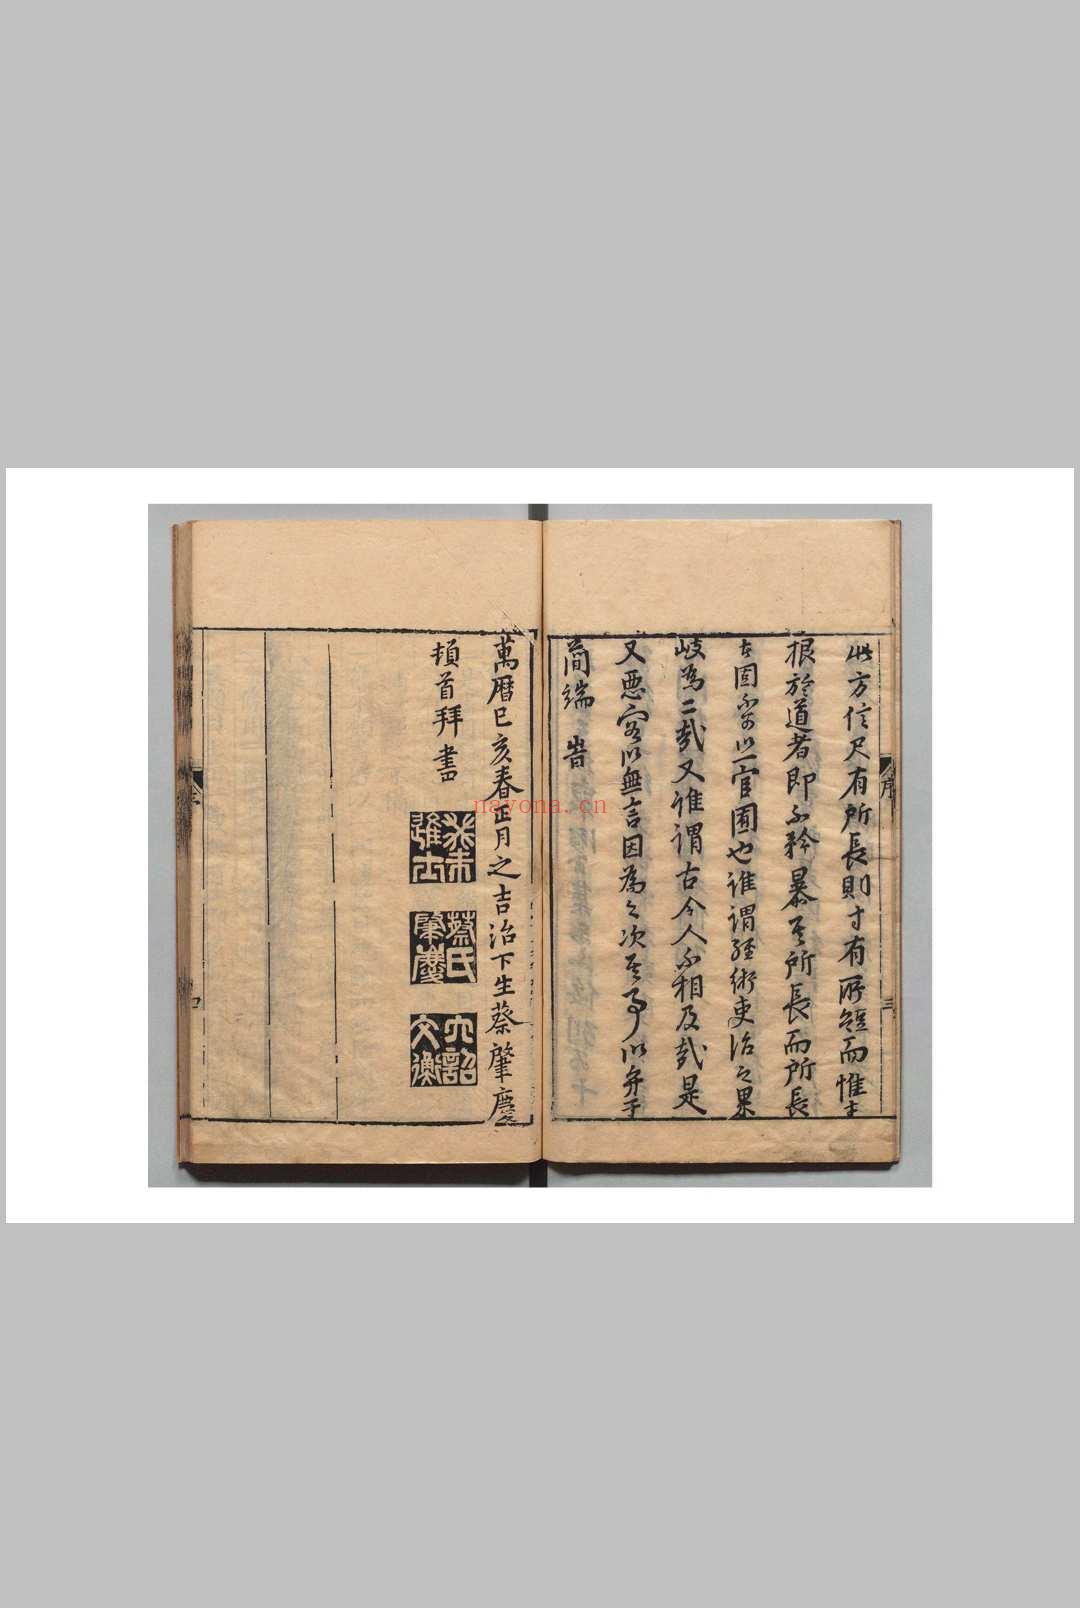 此方信尺有所長則寸有所短而惟其
根於道者即不矜暴其所長而所長
者固不可以一官囿也誰謂經術吏治之果
岐為二哉又誰謂古今人不相及哉是
又惡容以無言因為之次其事以弁于
簡端 旹
萬曆己亥春正月之吉治下生蔡肇慶
頓首拜書
癸未進士
蔡氏肇慶
文衡
序
三
四
nayona.cn